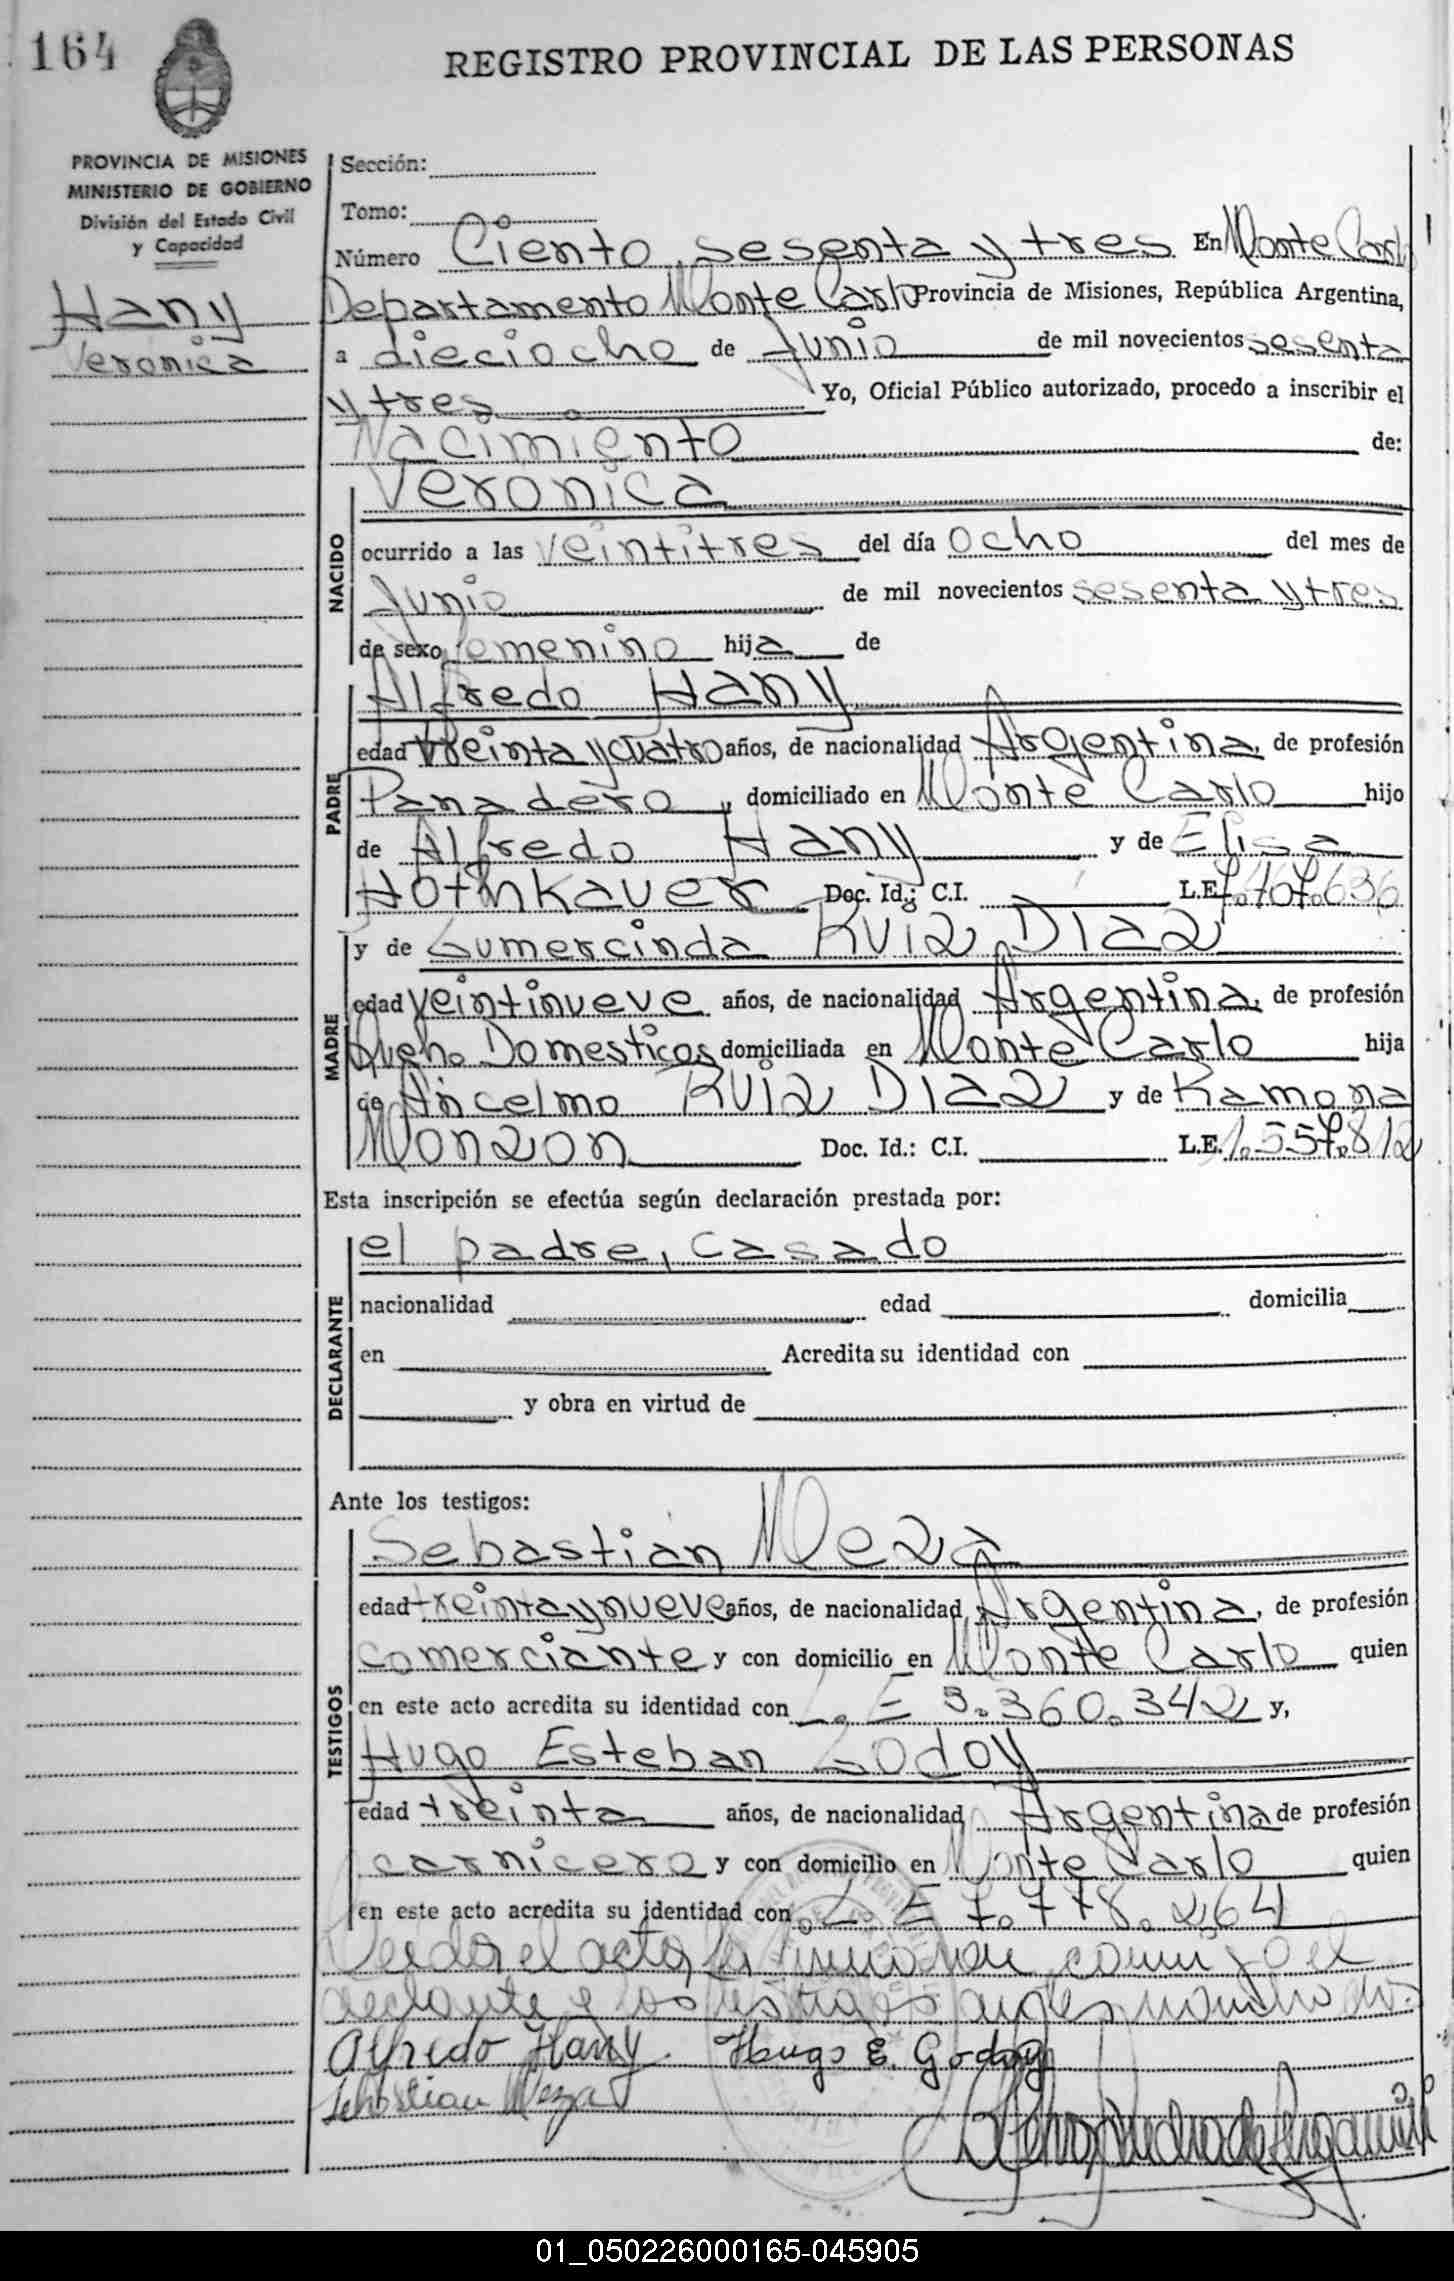 164
REGISTRO PROVINCIAL DE LAS PERSONAS
PROVINCIA DE MISIONES
MINISTERIO DE GOBIERNO
División del Estado Civil
y Capacidad
Hany
Veronica
Sección:
Tomo:
Número Ciento sesenta y tres En Monte Carlo
Departamento Monte Carlo Provincia de Misiones, República Argentina,
a dieciocho de Junio de mil novecientos sesenta
y tres Yo, Oficial Público autorizado, procedo a inscribir el
Nacimiento de:
NACIDO
Veronica
ocurrido a las veintitres del día ocho del mes de
Junio de mil novecientos sesenta y tres
de sexo femenino hija de
PADRE
Alfredo Hany
edad treinta y cuatro años, de nacionalidad Argentina, de profesión
Panadero, domiciliado en Monte Carlo hijo
de Alfredo Hany y de Elisa
Hothkaver Doc. Id.: C.I. L.E.
MADRE
y de Gumercinda Ruiz Diaz
edad veintinueve años, de nacionalidad Argentina, de profesión
Queh. Domesticos domiciliada en Monte Carlo hija
de Ancelmo Ruiz Diaz y de Ramona
Monzon Doc. Id.: C.I. L.E. 1.557.812
Esta inscripción se efectúa según declaración prestada por:
DECLARANTE
el padre, casado
nacionalidad edad domicilia
en Acredita su identidad con
y obra en virtud de
Ante los testigos:
TESTIGOS
Sebastian Meza
edad treinta y nueve años, de nacionalidad Argentina, de profesión
comerciante y con domicilio en Monte Carlo quien
en este acto acredita su identidad con L. E 3.360.342 y,
Hugo Esteban Godoy
edad treinta años, de nacionalidad Argentina de profesión
carnicero y con domicilio en Monte Carlo quien
en este acto acredita su identidad con L. E 7.778.264
el acto, la
Alfredo Hany Hugo E. Godoy
Sebastian Meza
01_050226000165-045905